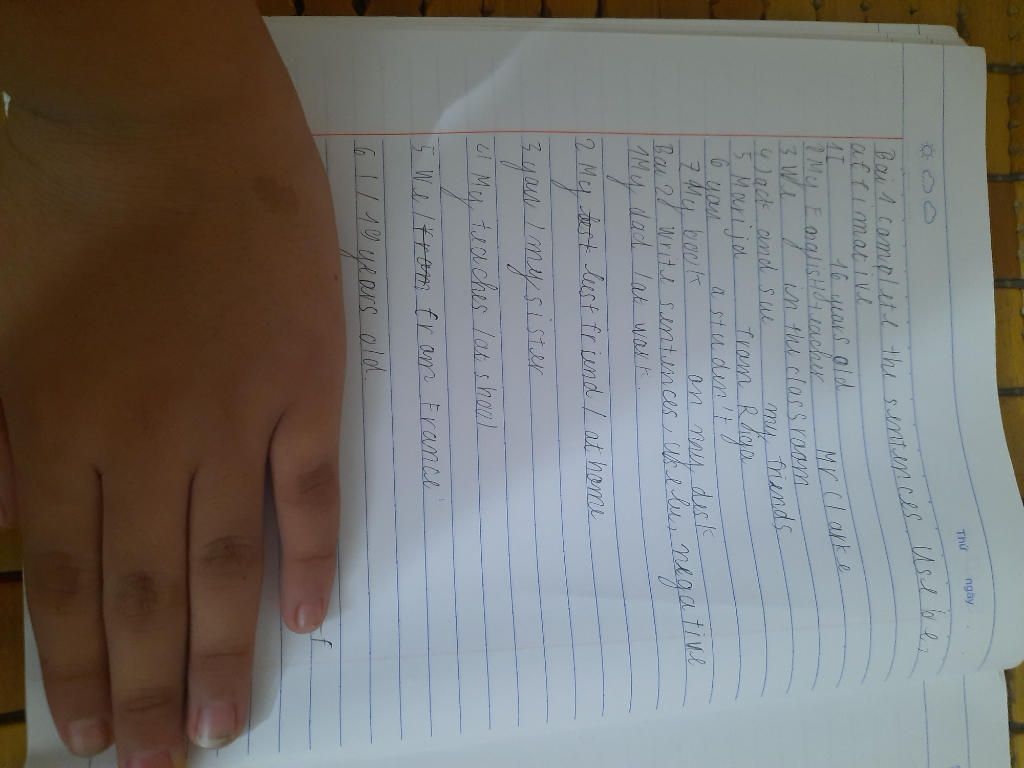 Thứ ngày
Bài 1 complete the sentences. Use be,
affimative
1 I 16 years old
2 My English teacher Mr Clarke
3 We in the classroom
4 Jack and sue my friends
5 Marija from Riga
6 you a student!
7 My book on my desk
Bài 2 Write sentences use be, negative
1 My dad / at work.
2 My best friend / at home
3 you / my sister
4 My teaches / at shool
5 We / from France
6 I / 19 years old.